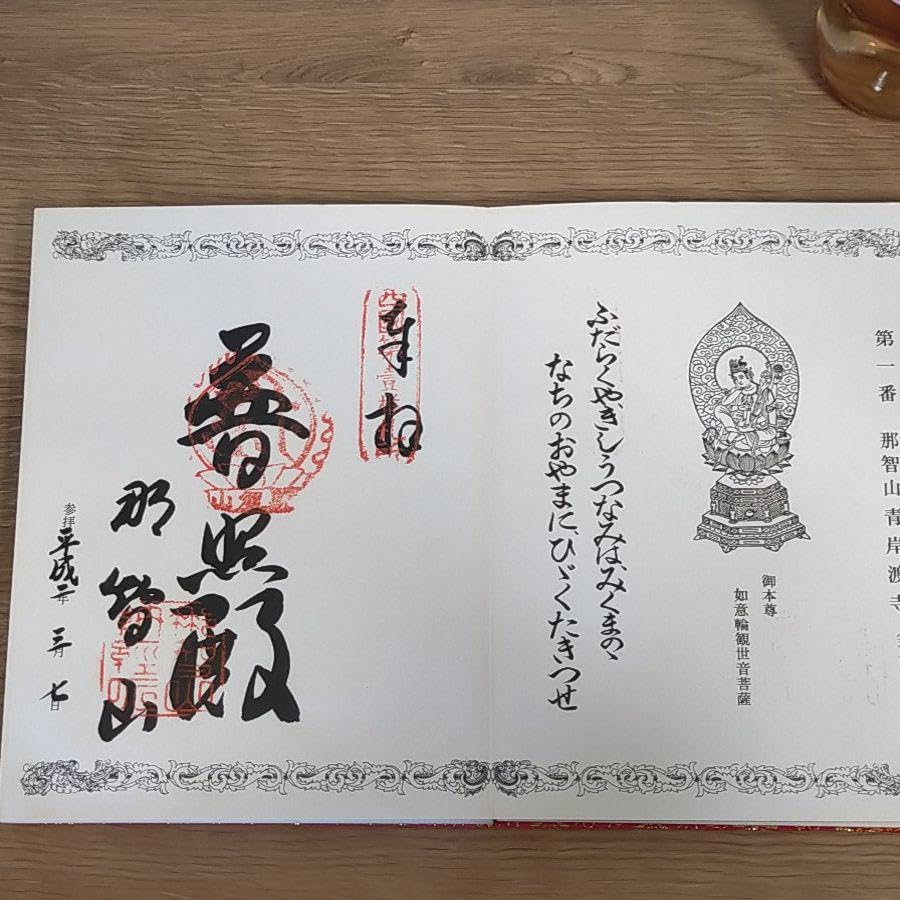 第一番 那智山青岸渡寺
御本尊
如意輪観世音菩薩
ふだらくやきしうつなみはみくまのゝ
なちのおやまにひゞくたきつせ
奉拝
普照殿
那智山
参拝 平成二年 三月 七日